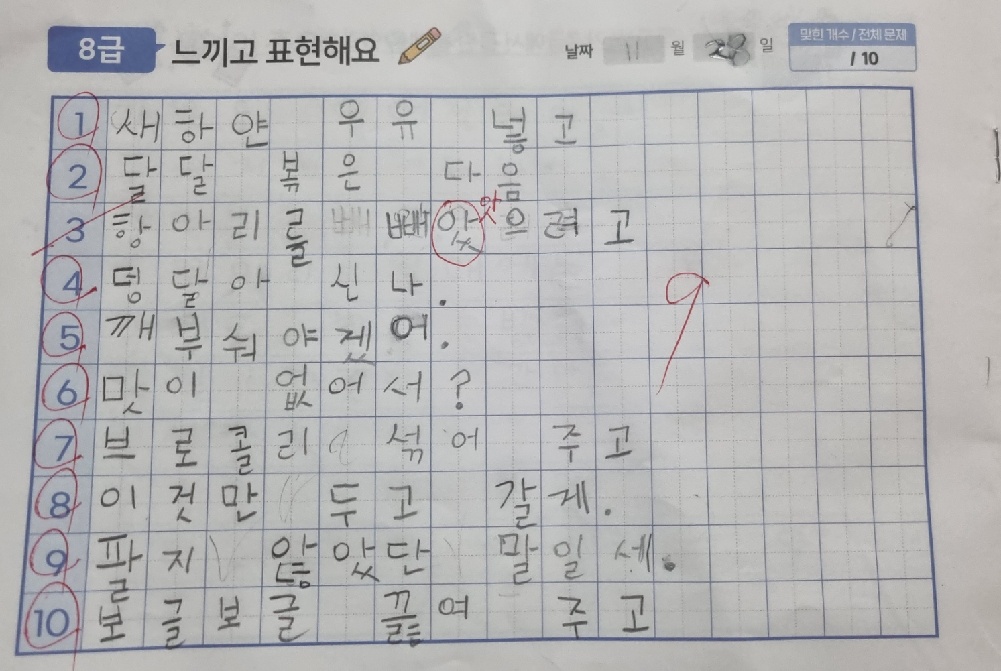 8급 느끼고 표현해요 날짜 11 월 28 일 맞힌 개수 / 전체 문제
/ 10
1 새하얀 우유 넣고
2 달달 볶은 다음
3 항아리를 빼앚으려고
앗
4 덩달아 신나.
5 깨부숴야겠어.
6 맛이 없어서?
7 브로콜리 섞어 주고
8 이것만 두고 갈게.
9 팔지 않았단 말일세.
10 보글보글 끓여 주고
9